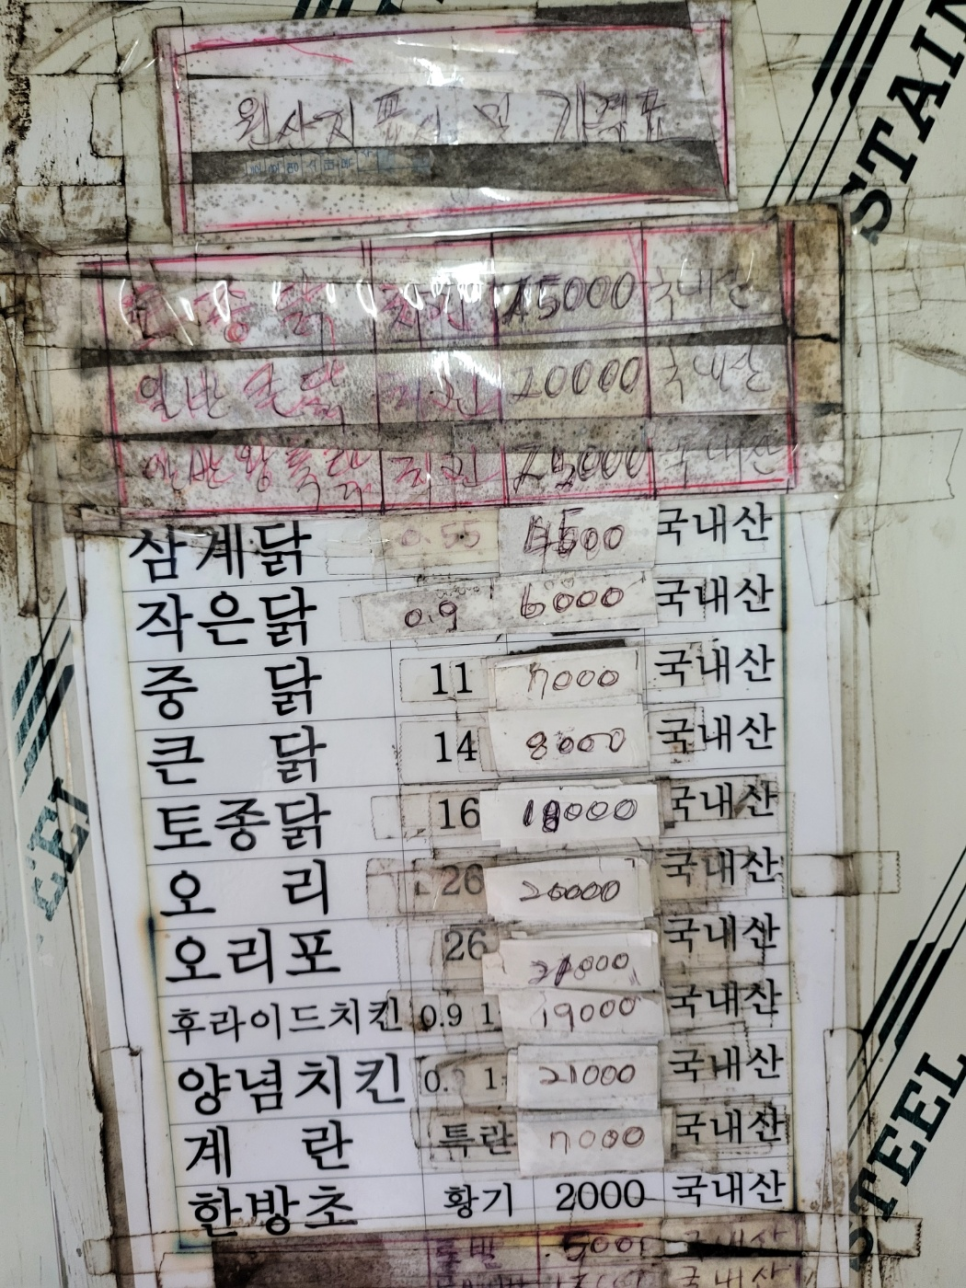 STAIN
원산지 표시 및 가격표
토종닭 치킨 25000 국내산
일반 큰닭 치킨 20000 국내산
일반 왕특닭 치킨 25000 국내산
삼계닭 0.55 4500 국내산
작은닭 0.9 6000 국내산
중 닭 11 7000 국내산
큰 닭 14 8000 국내산
토종닭 16 18000 국내산
오 리 26 20000 국내산
오리포 26 21000 국내산
후라이드치킨 0.9 1 19000 국내산
양념치킨 0. 1 21000 국내산
계 란 특란 7000 국내산
한방초 황기 2000 국내산
국내산
STEEL